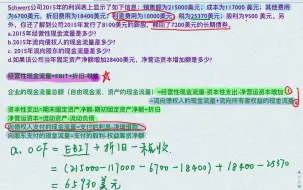 Schwert公司2015年的利润表上显示了如下信息：销售额为215000美元；成本为117000 美元；其他费用
为6700美元；折旧费用为18400美元；利息费用为10000美元，税为25370美元；股利为9500 美元。另
外，你还了解到公司2015年发行了8100元的新股，赎回了7200美元的长期债券。
a.2015年的经营性现金流量是多少？
b.2015年流向债权人的现金流量是多少？
c.2015年流向股东的现金流量是多少？
d.如果该公司当年固定资产增加额28400美元，净营运资本增加额是多少？
经营性现金流量=EBIT+折旧-税收
企业的现金流量总额（自由现金流、资产的现金流量）=经营性现金流量-资本性支出-净营运资本增加
=流向债权人的现金流量+流向所有者权益的现金流量
资本性支出=期末固定资产净额-期初固定资产净额+折旧
净营运资本=流动资产-流动负债
向债权人支付的现金流量=支付的利息-净增借款
向股东支付的现金流量=支付的股利-权益筹资净额
a. OCF = EBIT + 折旧 - 税收
= (215000-117000-6700-18400) + 18400-25370
= 65930 美元